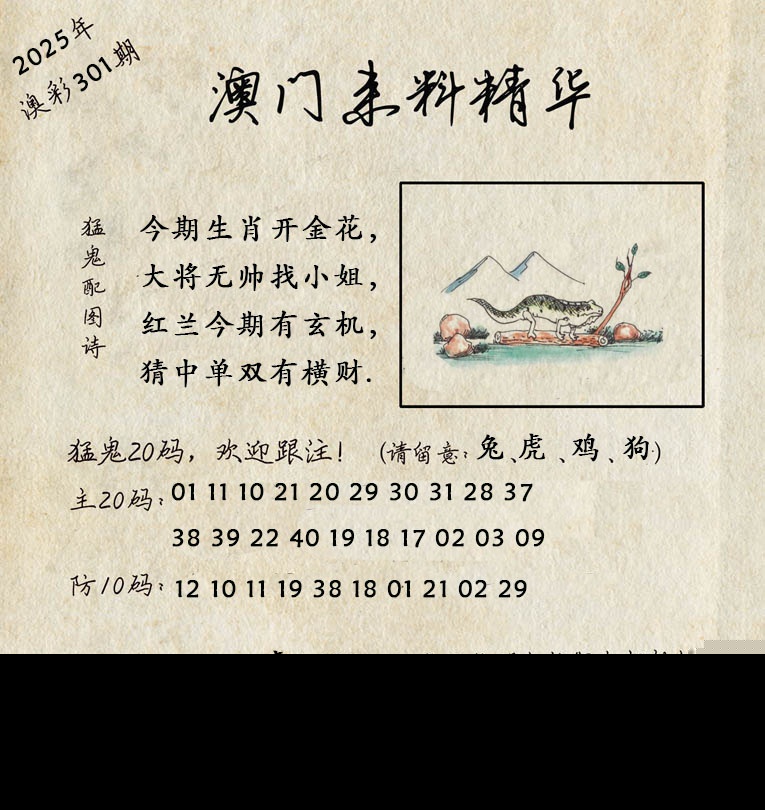 2025年
澳彩301期
澳门来料精华
猛鬼配图诗
今期生肖开金花，
大将无帅找小姐，
红兰今期有玄机，
猜中单双有横财.
猛鬼20码，欢迎跟注！（请留意：兔、虎、鸡、狗）
主20码：01 11 10 21 20 29 30 31 28 37
38 39 22 40 19 18 17 02 03 09
防10码：12 10 11 19 38 18 01 21 02 29